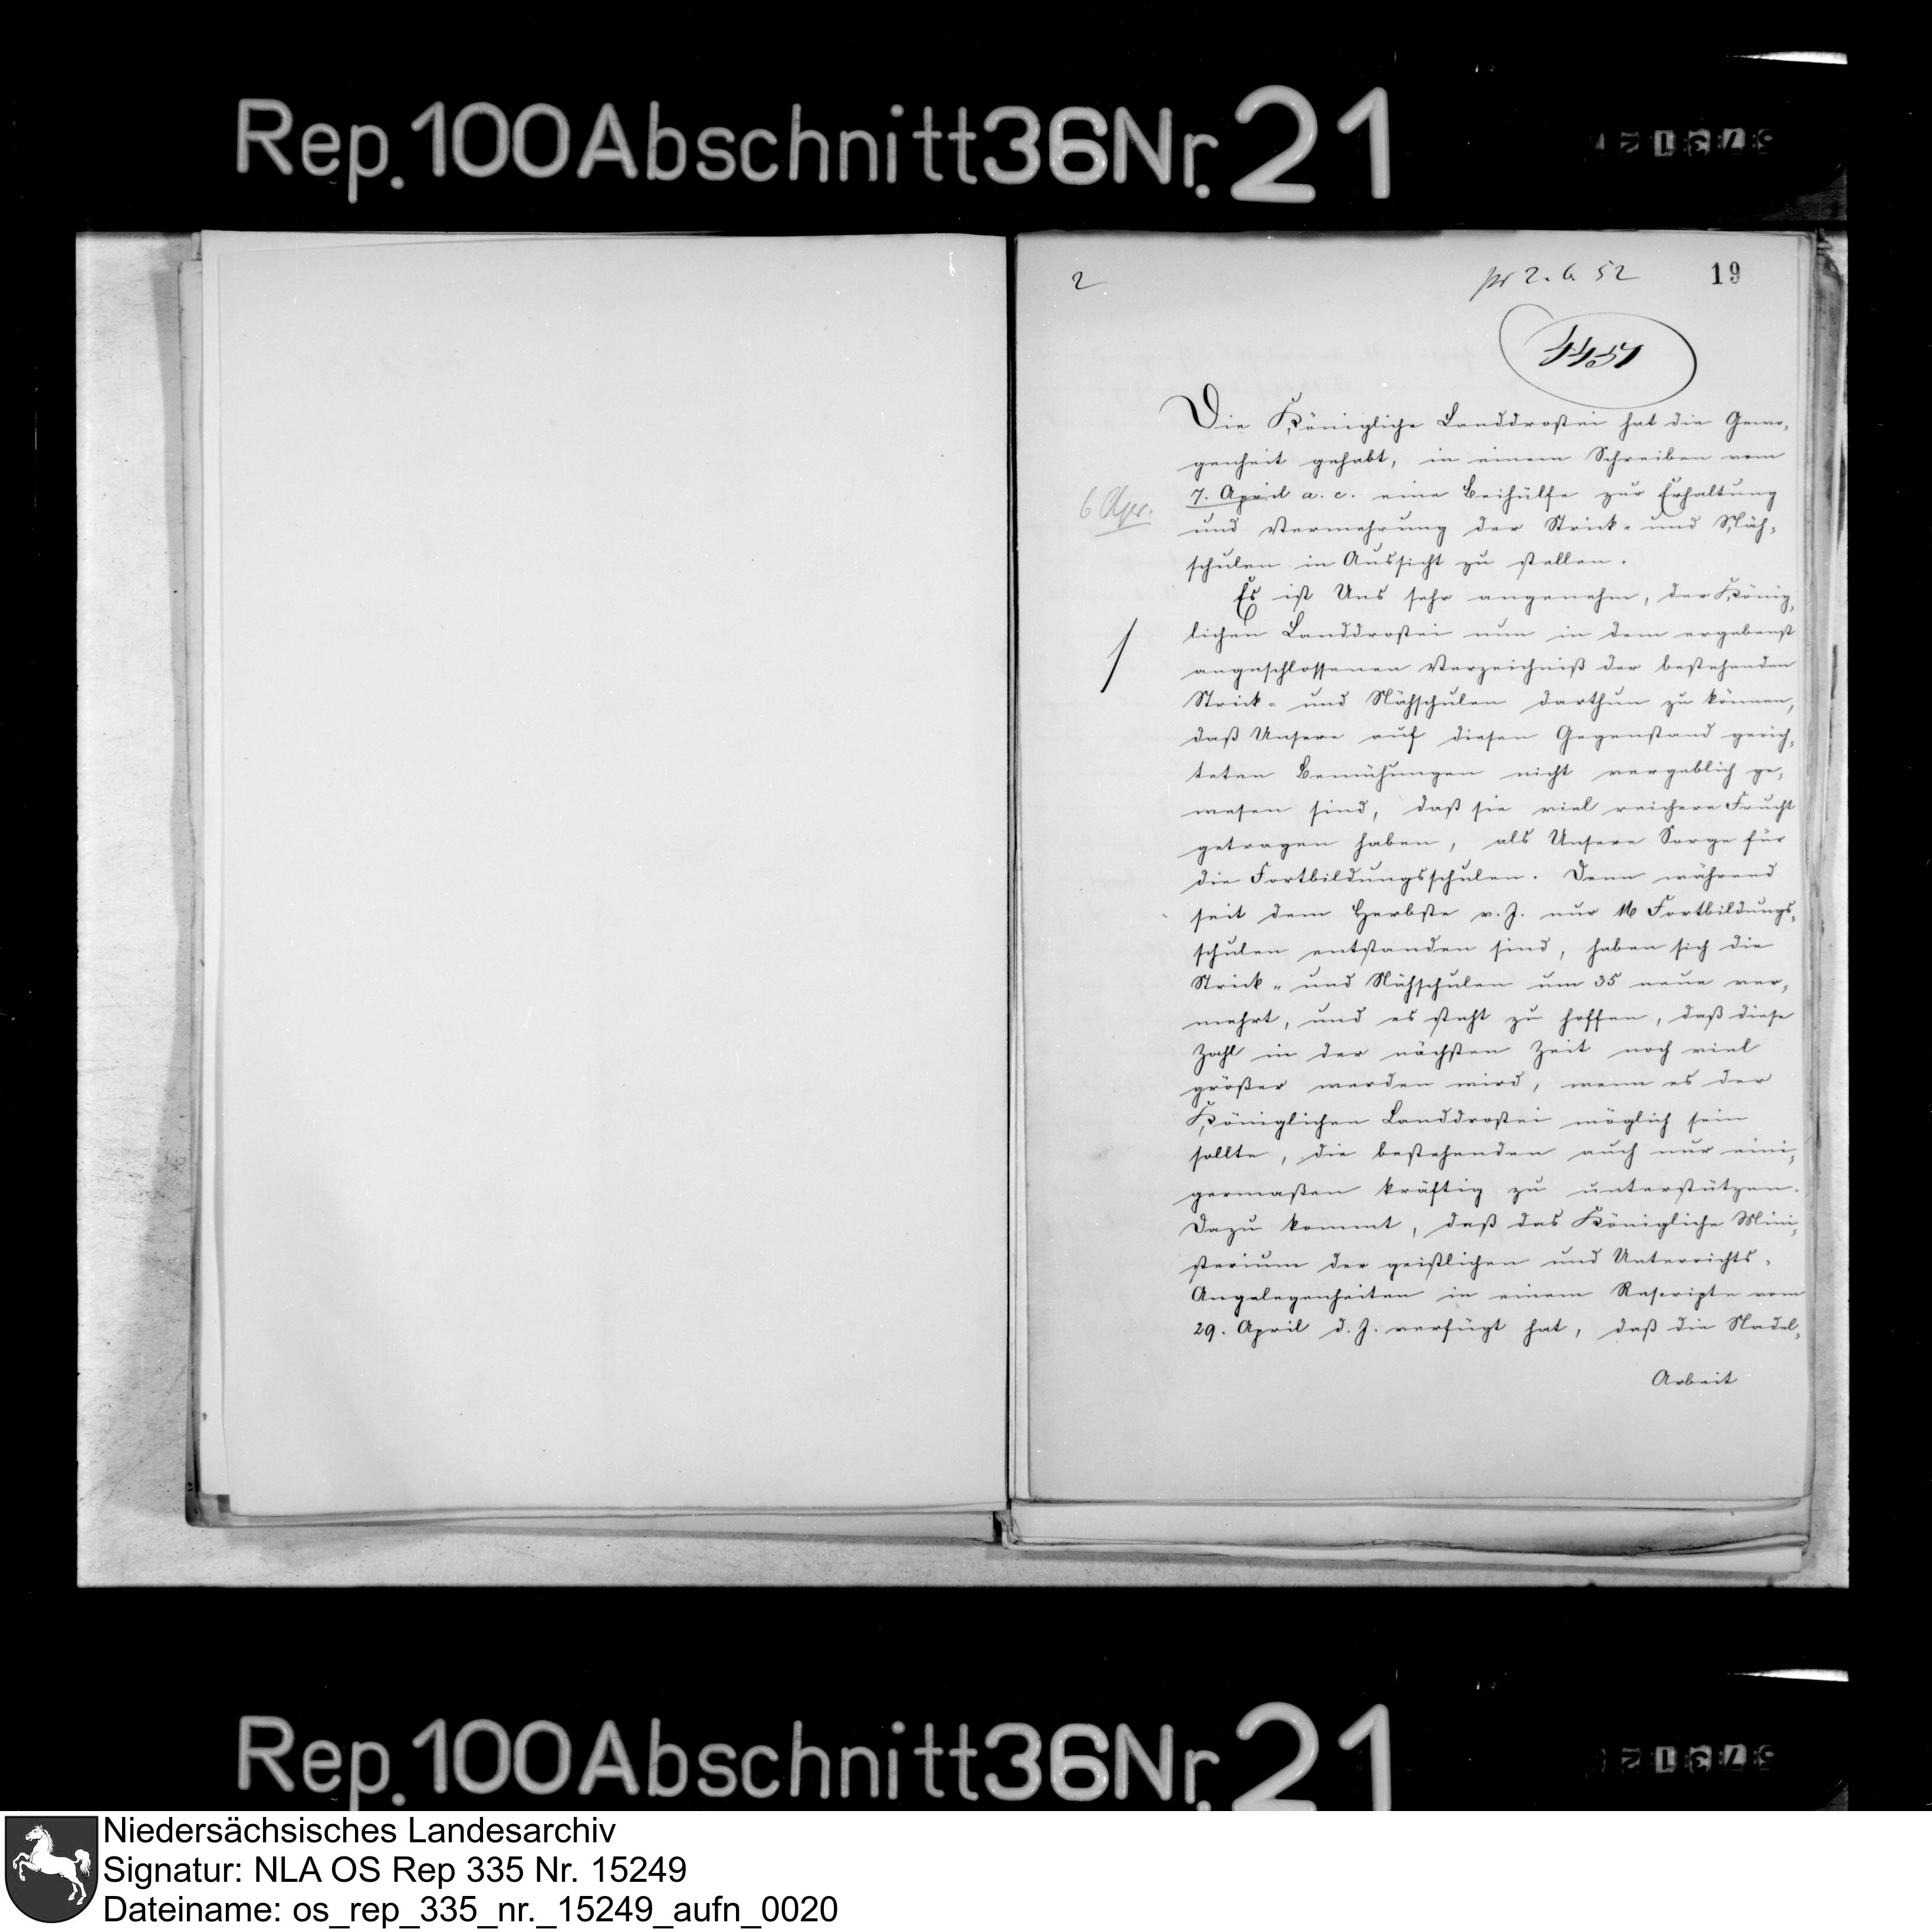 Rep. 100 Abschnitt 36 Nr. 21
2
pr 2. 6. 52
19
4451
Die Königliche Landdrostei hat die Gewo¬
genheit gehabt, in einem Schreiben vom
7. April a. c. eine Beihülfe zur Erhaltung
6 Apr.
und Vermehrung der Strick- und Näh¬
schulen in Aussicht zu stellen.
Es ist Uns sehr angenehm, der König¬
lichen Landdrostei nun in dem ergebenst
angeschlossenen Verzeichniß der bestehenden
Strick- und Nähschulen darthun zu können,
daß Unsere auf diesen Gegenstand gerich¬
teten Bemühungen nicht vergeblich ge¬
wesen sind, daß sie viel reichere Frucht
getragen haben, als Unsere Sorge für
die Fortbildungsschulen. Denn während
seit dem Herbste v. J. nur 16 Fortbildungs¬
schulen entstanden sind, haben sich die
Strick- und Nähschulen um 35 neue ver¬
mehrt, und es steht zu hoffen, daß diese
Zahl in der nächsten Zeit noch viel
größer werden wird, wenn es der
Königlichen Landdrostei möglich sein
sollte, die bestehenden auch nur eini¬
germaßen kräftig zu unterstützen.
Dazu kommt, daß das Königliche Mini¬
sterium der geistlichen und Unterrichts-
Angelegenheiten in einem Rescripte vom
29. April d. J. verfügt hat, daß die Nadel¬
Arbeit
Rep. 100 Abschnitt 36 Nr. 21
Niedersächsisches Landesarchiv
Signatur: NLA OS Rep 335 Nr. 15249
Dateiname: os_rep_335_nr._15249_aufn_0020